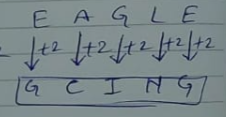 E A G L E
↓+2 ↓+2 ↓+2 ↓+2 ↓+2
G C I N G